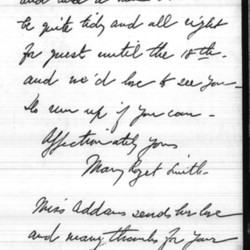 be quite tidy and all right
for guest until the 18th -
and we'd love to see you -
Do run up if you can -
Affectionately Yours
Mary Rozet Smith -
Miss Addams sends her love
and many thanks for your